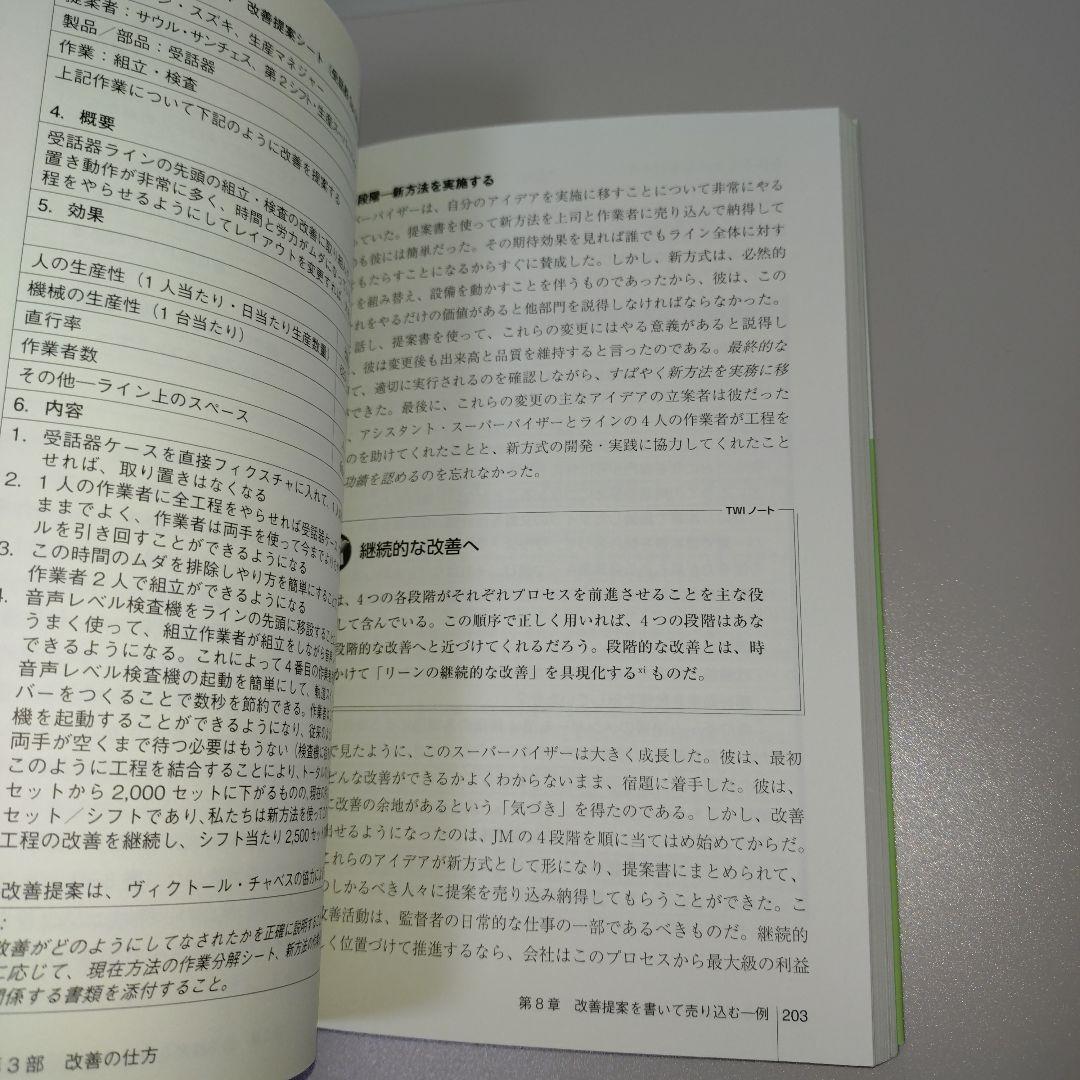 改善提案シート
提案者：サウル・サンチェス、第2シフト・生産スーパー
スズキ、生産マネジャー
製品／部品：受話器
作業：組立・検査
上記作業について下記のように改善を提案する
4. 概要
受話器ラインの先頭の組立・検査の改善に取り組
置き動作が非常に多く、時間と労力がムダに
程をやらせるようにしてレイアウトを変更すれば
5. 効果
人の生産性（1人当たり・日当たり生産数量）
機械の生産性（1台当たり）
直行率
作業者数
その他―ライン上のスペース
6. 内容
1. 受話器ケースを直接フィクスチャに入れて、1人
せれば、取り置きはなくなる
2. 1人の作業者に全工程をやらせれば受話器ケー
ままでよく、作業者は両手を使って今まで
ルを引き回すことができるようになる
3. この時間のムダを排除しやり方を簡単にすること
作業者2人で組立ができるようになる
音声レベル検査機をラインの先頭に移設する
うまく使って、組立作業者が組立をしながら
できるようになる。これによって4番目の作業
音声レベル検査機の起動を簡単にして、
バーをつくることで数秒を節約できる。作業者は
機を起動することができるようになり、従来の
両手が空くまで待つ必要はもうない（検査機に
このように工程を結合することにより、トータル
セットから2,000セットに下がるものの、現在の
セット／シフトであり、私たちは新方法を使って
工程の改善を継続し、シフト当たり2,500セット
改善提案は、ヴィクトール・チャベスの協力に
：
改善がどのようにしてなされたかを正確に説明する
に応じて、現在方法の作業分解シート、新方法の作業
関係する書類を添付すること。
3部 改善の仕方
段階―新方法を実施する
ーバイザーは、自分のアイデアを実施に移すことについて非常にやる
っていた。提案書を使って新方法を上司と作業者に売り込んで納得して
のも彼には簡単だった。その期待効果を見れば誰でもライン全体に対す
をもたらすことになるからすぐに賛成した。しかし、新方式は、必然的
を組み替え、設備を動かすことを伴うものであったから、彼は、この
れをやるだけの価値があると他部門を説得しなければならなかった。
話し、提案書を使って、これらの変更にはやる意義があると説得し
、彼は変更後も出来高と品質を維持すると言ったのである。最終的な
て、適切に実行されるのを確認しながら、すばやく新方法を実務に移
ができた。最後に、これらの変更の主なアイデアの立案者は彼だった
、アシスタント・スーパーバイザーとラインの4人の作業者が工程を
のを助けてくれたことと、新方式の開発・実践に協力してくれたこと
功績を認めるのを忘れなかった。
TWIノート
継続的な改善へ
は、4つの各段階がそれぞれプロセスを前進させることを主な役
して含んでいる。この順序で正しく用いれば、4つの段階はあな
段階的な改善へと近づけてくれるだろう。段階的な改善とは、時
かけて「リーンの継続的な改善」を具現化するxiものだ。
で見たように、このスーパーバイザーは大きく成長した。彼は、最初
どんな改善ができるかよくわからないまま、宿題に着手した。彼は、
に改善の余地があるという「気づき」を得たのである。しかし、改善
出せるようになったのは、JMの4段階を順に当てはめ始めてからだ。
これらのアイデアが新方式として形になり、提案書にまとめられて、
つしかるべき人々に提案を売り込み納得してもらうことができた。こ
改善活動は、監督者の日常的な仕事の一部であるべきものだ。継続的
く位置づけて推進するなら、会社はこのプロセスから最大級の利益
第8章 改善提案を書いて売り込む―例 203